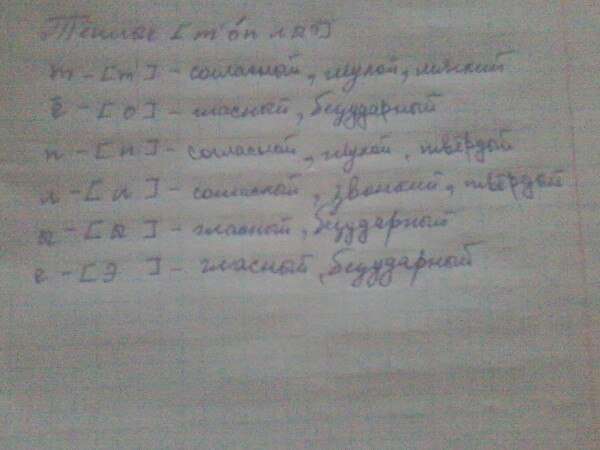 Тёплае [т о́п лаэ]
т - [т] - согласный, глухой, мягкий
ё - [о] - гласный, безударный
п - [п] - согласной, глухой, твёрдый
л - [л] - согласной, звонкий, твёрдый
а - [а] - гласный, безударный
е - [э ] - гласной, безударный